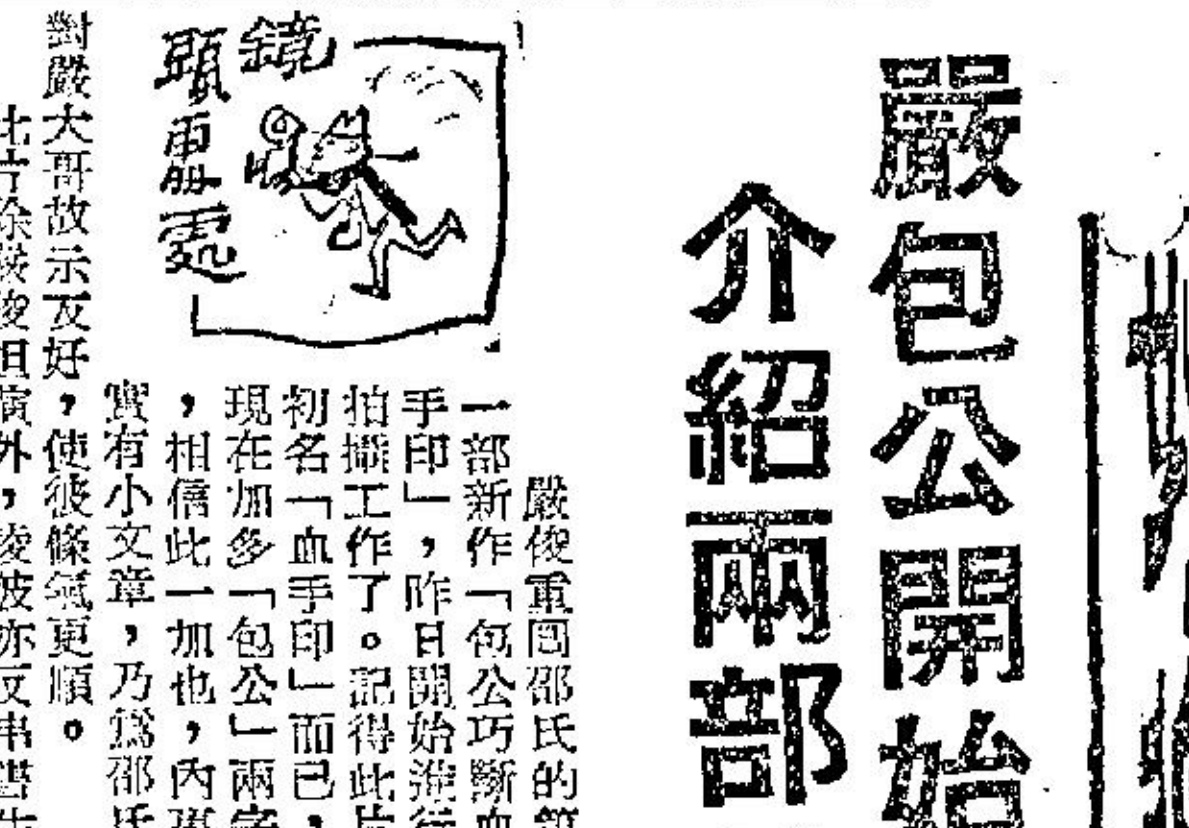 嚴包公開始
介紹兩部
鏡頭
兩冊霓
嚴俊重回邵氏的第
一部新作「包公巧斷血
手印」，昨日開始進行
拍攝工作了。記得此片
初名「血手印」而已，
現在加多「包公」兩字
，相信此一加也，內裏
實有小文章，乃爲邵氏
對嚴大哥故示友好，使彼條氣更順。
此片除嚴俊担演外，凌波亦反串書生